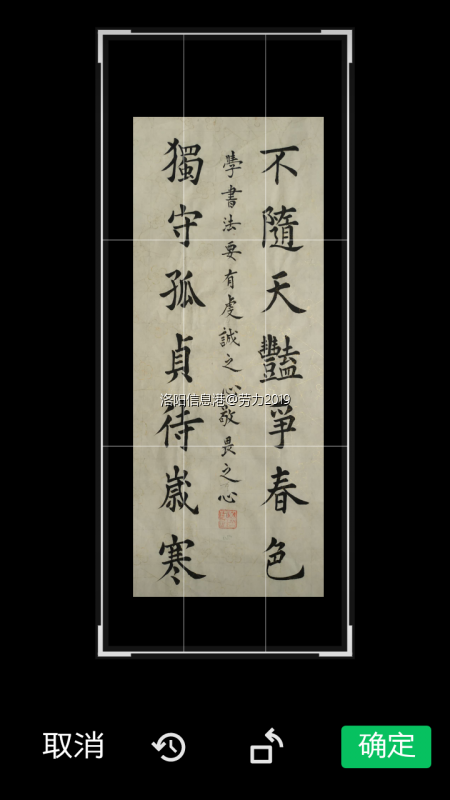 不隨天豔爭春色
學書法要有虔誠之心敬畏之心
獨守孤貞待嵗寒
洛阳信息港@劳力2019
取消
确定